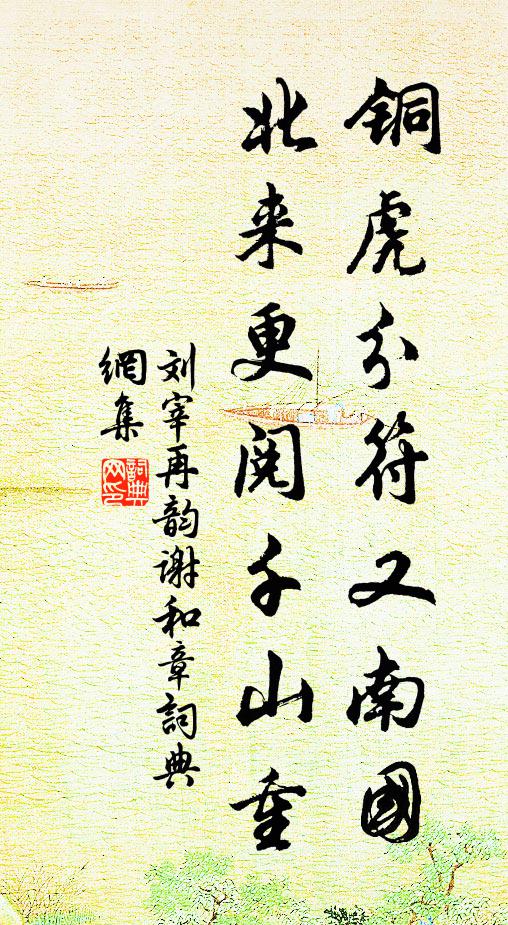 铜虎分符又南國
北来更阅千山重
刘宰再韵谢和章詞典
網集
詞典
网印